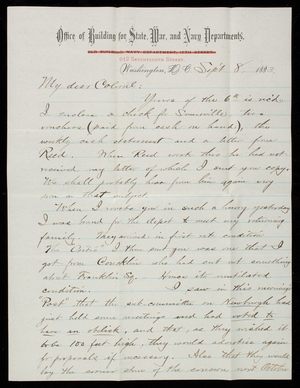 Office of Building for State, War, and Navy Departments,
Washington, D.C. Sept 8, 188
My dear Colonel:
Yours of the 6th is rec'd.
I enclose a check for Somerville, two
vouchers (paid from cash on hand), the
weekly cash statement and a letter from
Reed. When Reed wrote this he had not
received my letter of which I sent you copy.
We shall probably hear from him again very
soon on that subject.
When I wrote you in such a hurry yesterday
I was bound for the depot to meet my returning
family. They arrived in first rate condition.
The "Notice" I then sent you was one that I
got from Conklin who had cut out something
about Franklin Sq. Hence its mutilated
condition. I saw in this morning's
Post that the sub-committee on Newburgh had
just held some meetings and had voted to
have an obelisk, and that, as they wished it
to be 100 feet high, they would advertise again
for proposals if necessary. Also that they would
lay the corner stone of the concern next October